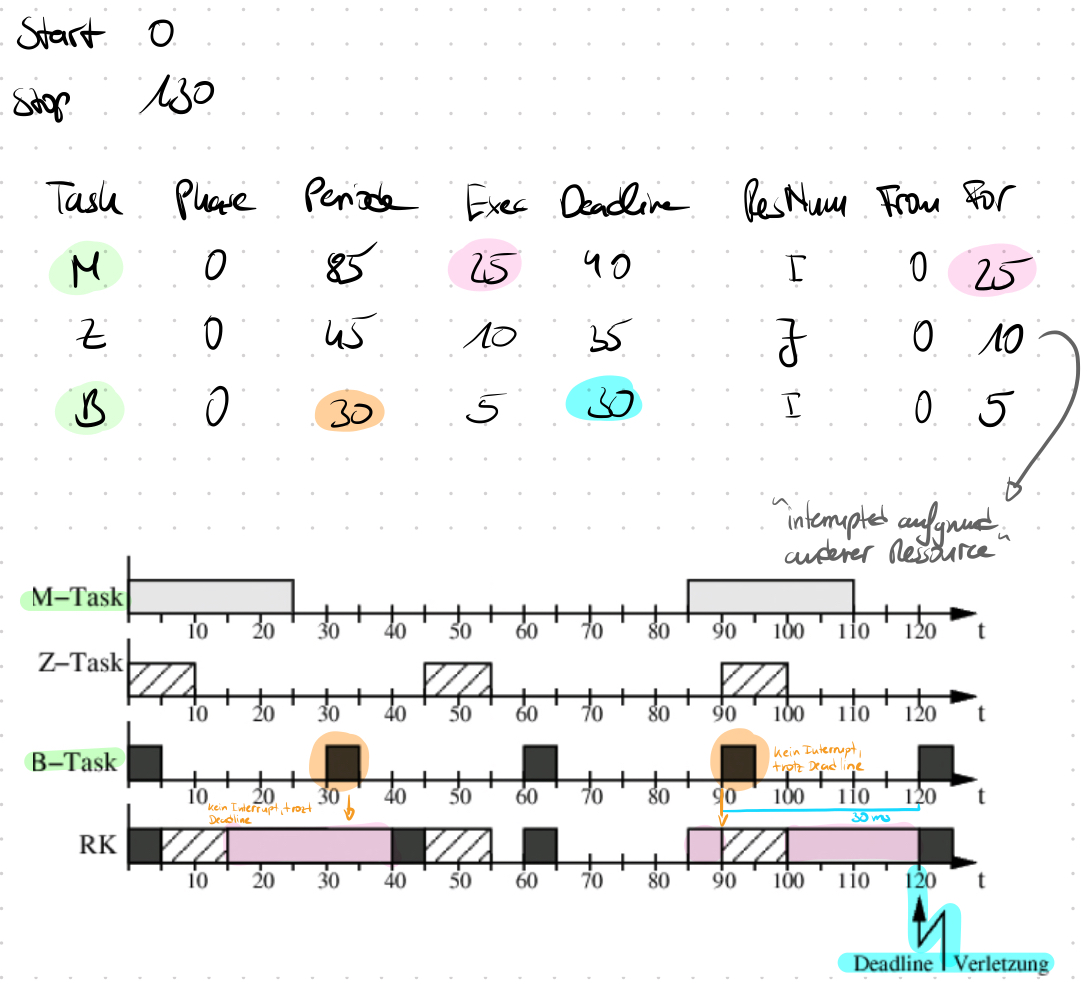 Start 0
Stop 130
Task Phase Periode Exec Deadline ResNum From For
M 0 85 25 40 I 0 25
Z 0 45 10 35 J 0 10
B 0 30 5 30 I 0 5
"interrupted aufgrund
anderer Ressource"
M-Task
10 20 30 40 50 60 70 80 90 100 110 120 t
Z-Task
10 20 30 40 50 60 70 80 90 100 110 120 t
B-Task
kein Interrupt,
trotz Deadline
10 20 30 40 50 60 70 80 90 100 110 120 t
kein Interrupt, trozt
Deadline
30 ms
RK
10 20 30 40 50 60 70 80 90 100 110 120 t
Deadline Verletzung